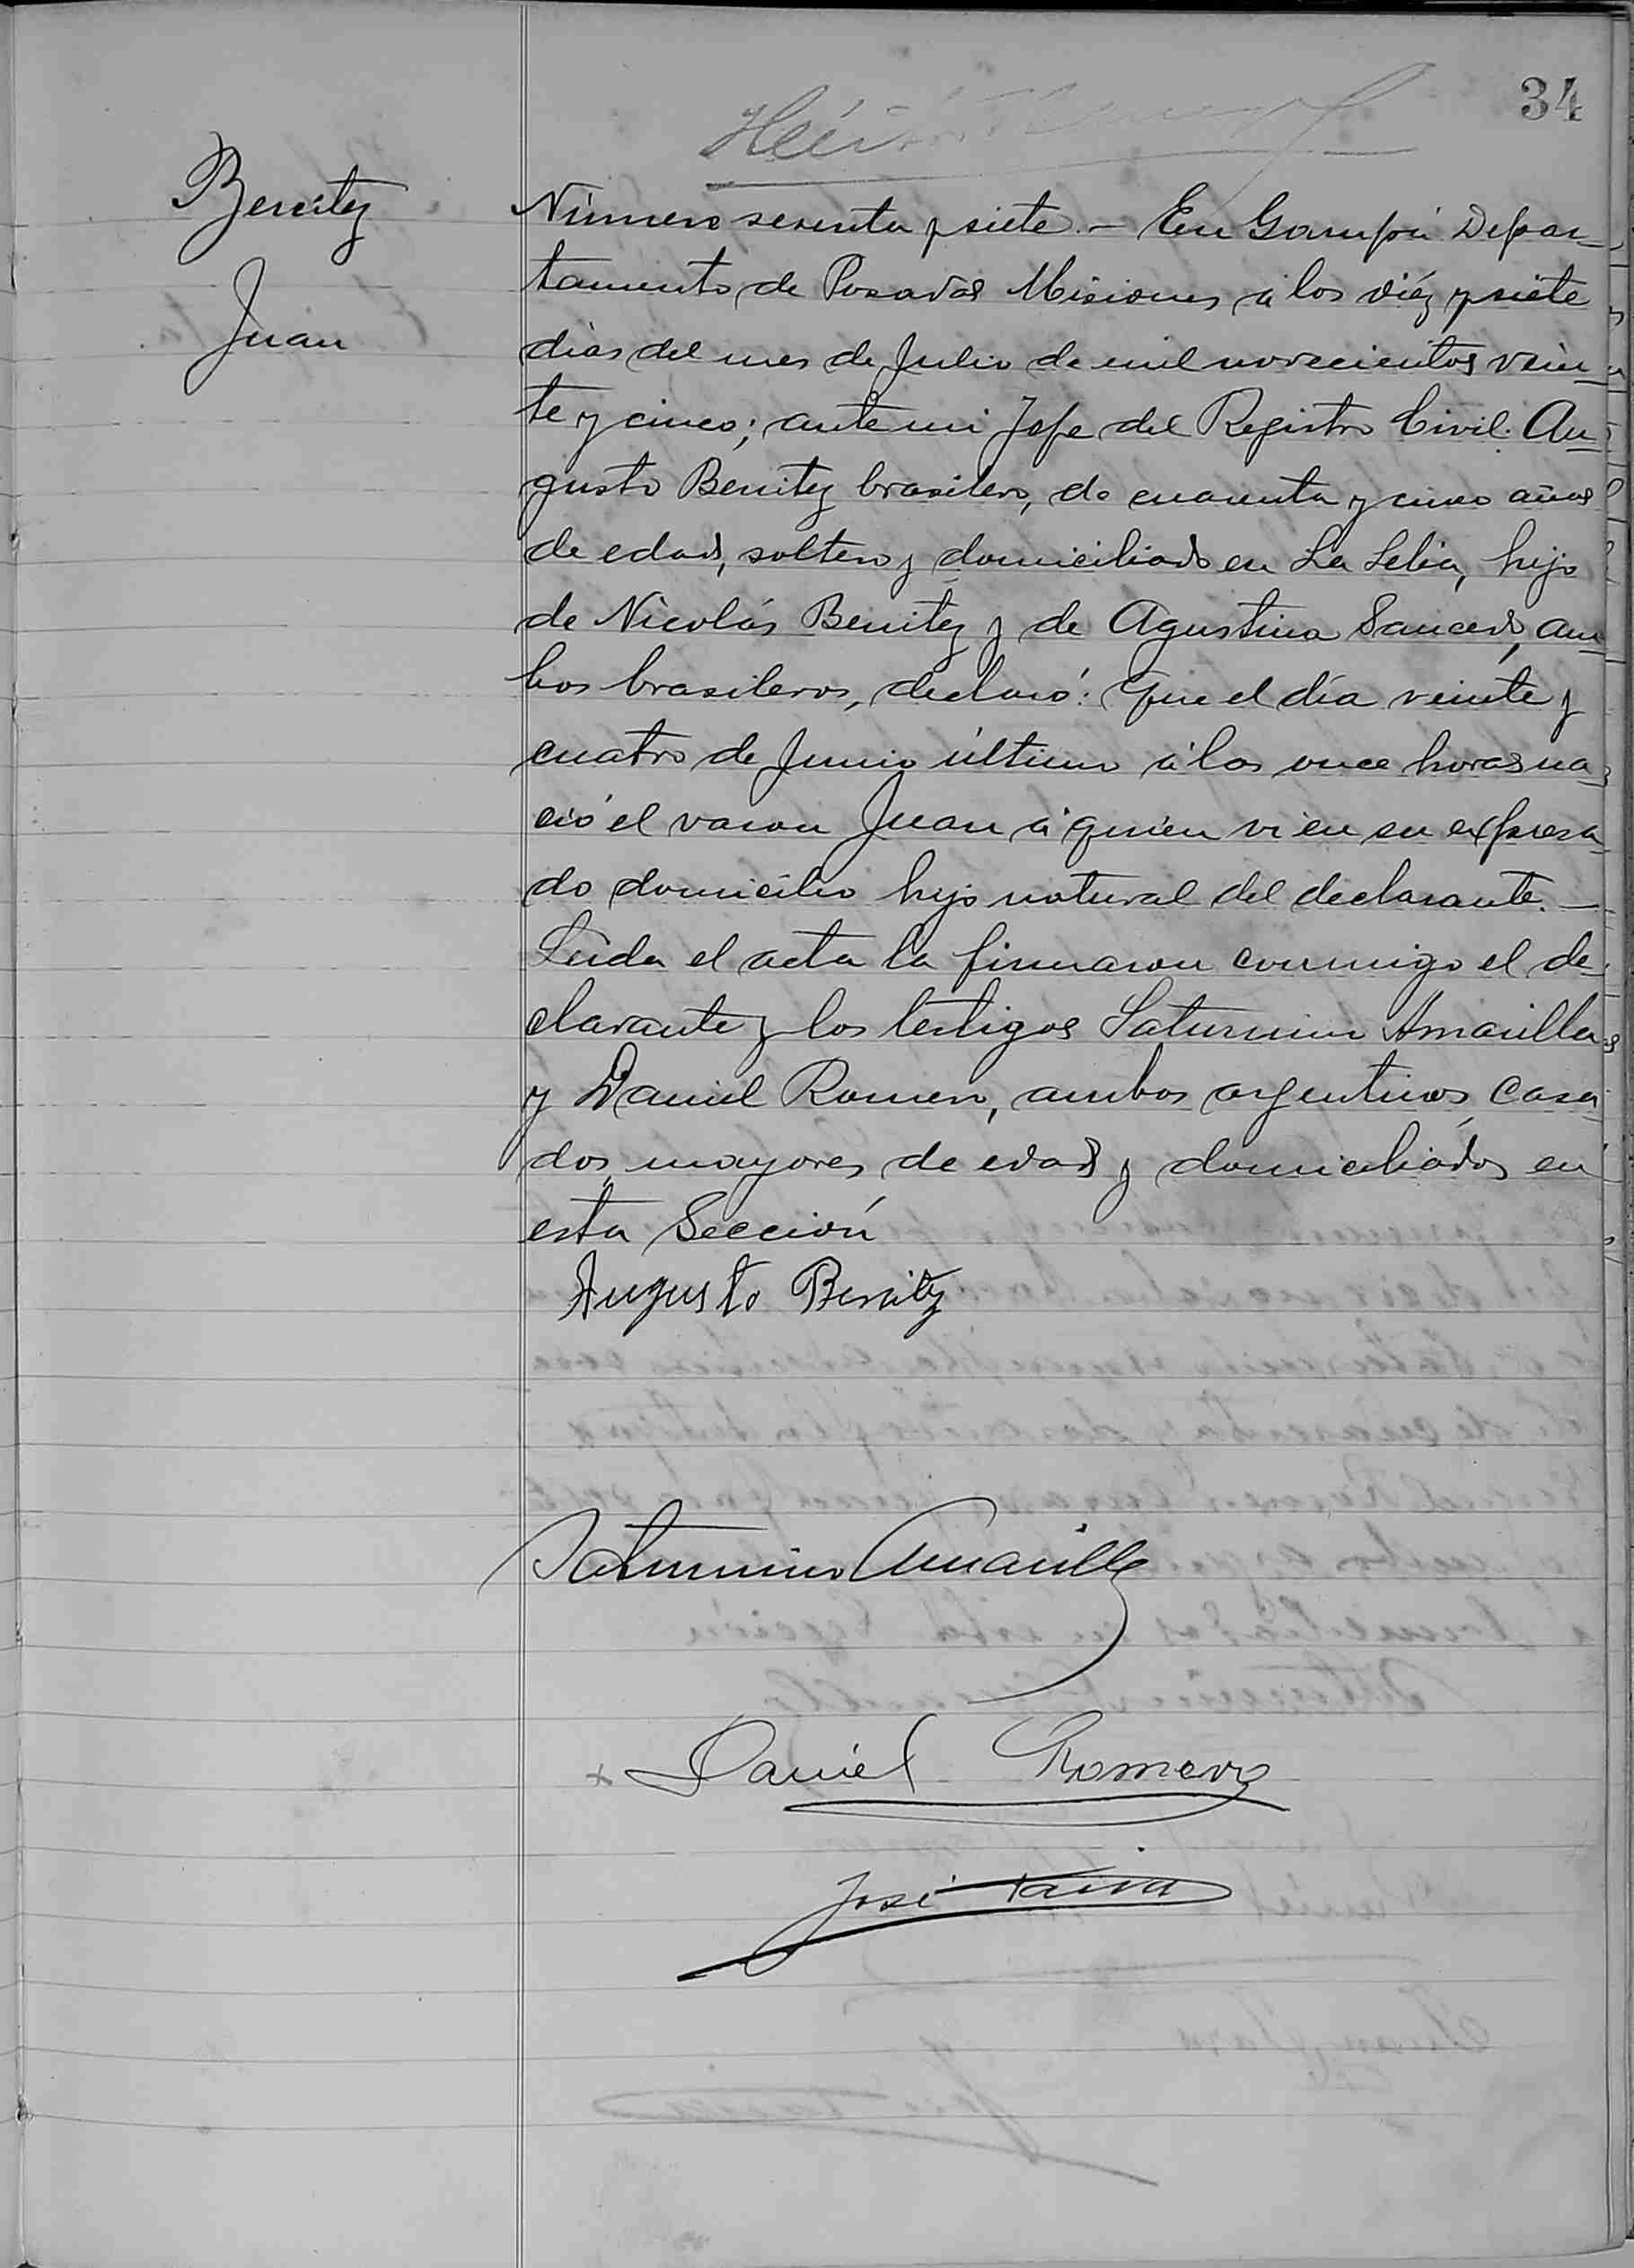 34
Benitez
Juan
Número sesenta y siete.- En Garupá Depar-
tamento de Posadas Misiones á los diéz y siete
días del mes de Julio de mil novecientos vein-
te y cinco; ante mi Jefe del Registro Civil. Au-
gusto Benitez brasilero, de cuarenta y cinco años
de edad, soltero y domiciliado en La Lelia, hijo
de Nicolás Benitez y de Agustina Sauced, am-
bos brasileros, declaró: Que el día veinte y
cuatro de Junio último á las once horas na-
ció el varon Juan á quien vi en su expresa-
do domicilio hijo natural del declarante.-
Leída el acta la firmaron conmigo el de-
clarante y los testigos Saturnino Amarilla
y Daniel Romero, ambos argentinos, casa-
dos, mayores de edad y domiciliados en
esta Sección
Augusto Benitez
Saturnino Amarilla
x Daniel Romero
José